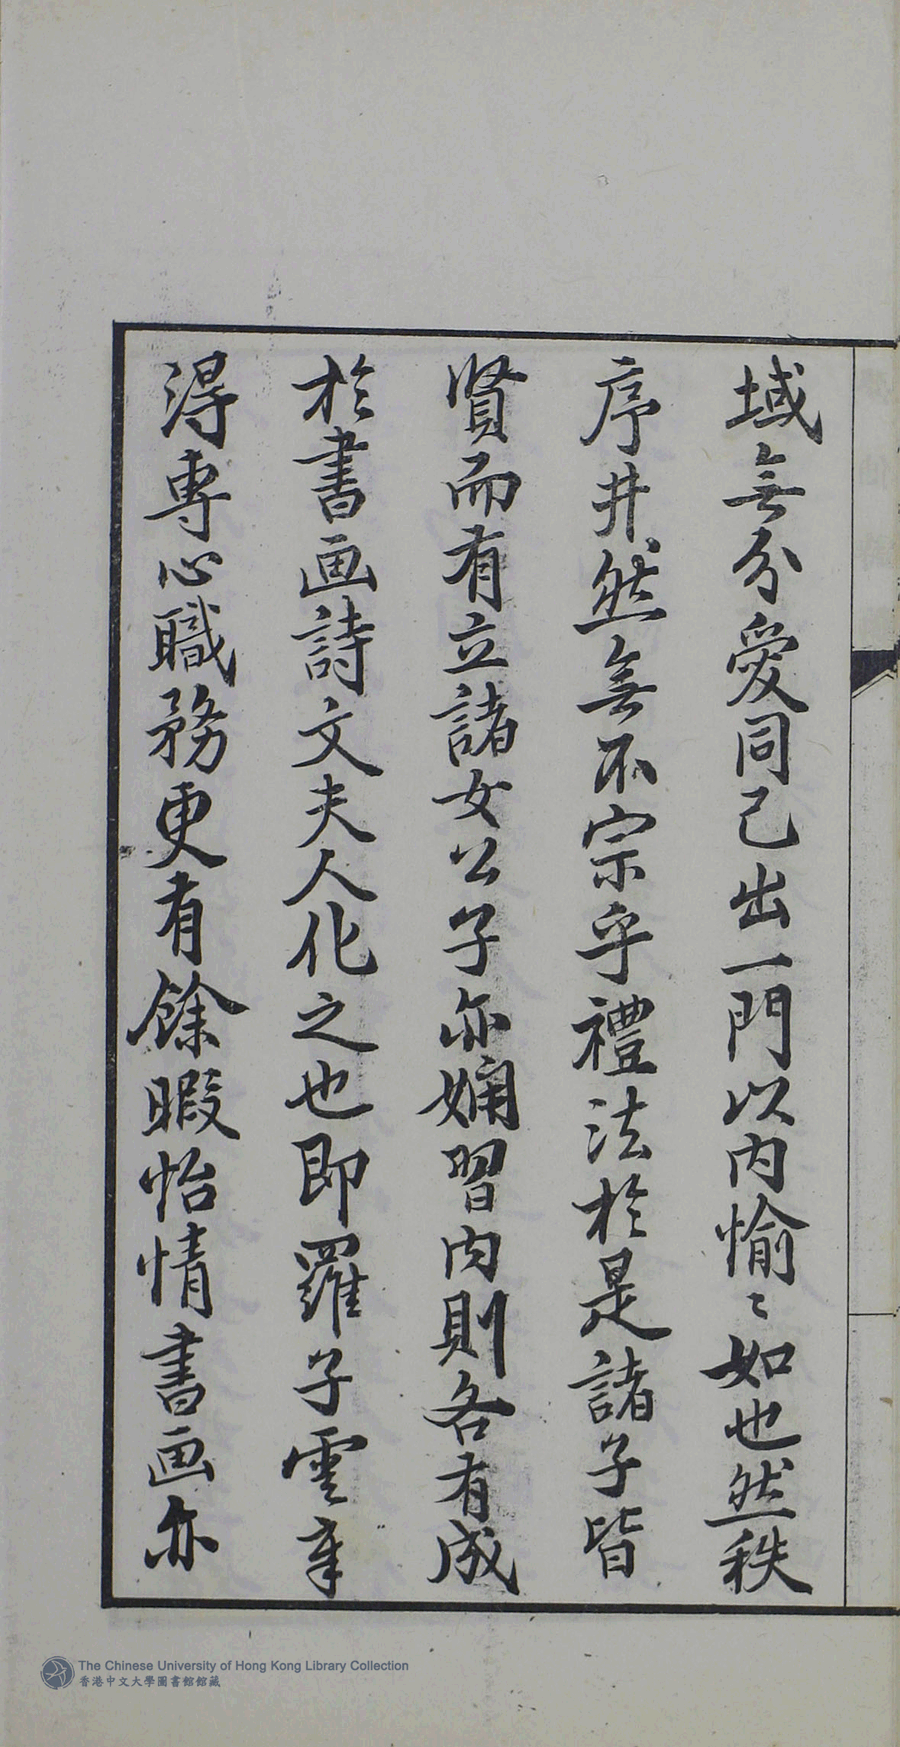 域無分愛同己出一門以内愉〻如也然秩
序井然無不宗乎禮法於是諸子皆
賢而有立諸女公子亦嫻習内則各有成
於書画詩文夫人化之也即羅子雲章
得專心職務更有餘暇怡情書画亦
The Chinese University of Hong Kong Library Collection
香港中文大學圖書館館藏